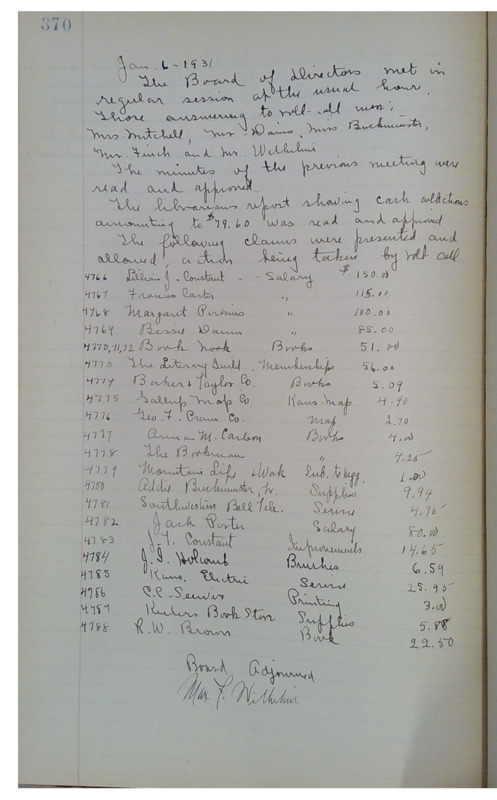 370
Jan. 6 - 1931
The Board of Directors met in
regular session at the usual hour.
Those answering to roll-call were;
Mrs. Mitchell, Mr. Dains, Miss Buchmaster,
Mr. Finch and Mr. Wilhelmi
The minutes of the previous meeting were
read and approved.
The librarians report showing cash collections
amounting to $79.60 was read and approved
The following claims were presented and
allowed, action being taken by roll call
4766 Lillian J. Constant - - Salary $ 150.00
4767 Frances Carter " 115.00
4768 Margaret Perkins " 100.00
4769 Bessie " 85.00
4770,71,72 Book Nook Books 51.00
4773 The Literary Guild. Memberships 56.00
4774 Baker & Taylor Co. Books 5.09
4775 Gallup Map Co. Kans. Map 4.90
4776 Geo. F. Cram Co. Map 2.70
4777 Anna M. Carlson Books 4.00
4778 The Bookman " 4.25
4779 Mountain Life & Work Sub. to 1.00
4780 Addie Buchmaster, Tr. Supplies 9.94
4781 Southwestern Bell Tele. Service 4.75
4782 Jack Porter Salary 80.00
4783 J. T. Constant Improvements 14.65
4784 J. I. Holcomb Brushes 6.59
4785 Kans. Electric Service 25.95
4786 C.C. Seewir Printing 3.00
4787 Keelers Book Store Supplies 5.88
4788 R. W. Brown Book 22.50
Board Adjourned
Max F. Wilhelmi